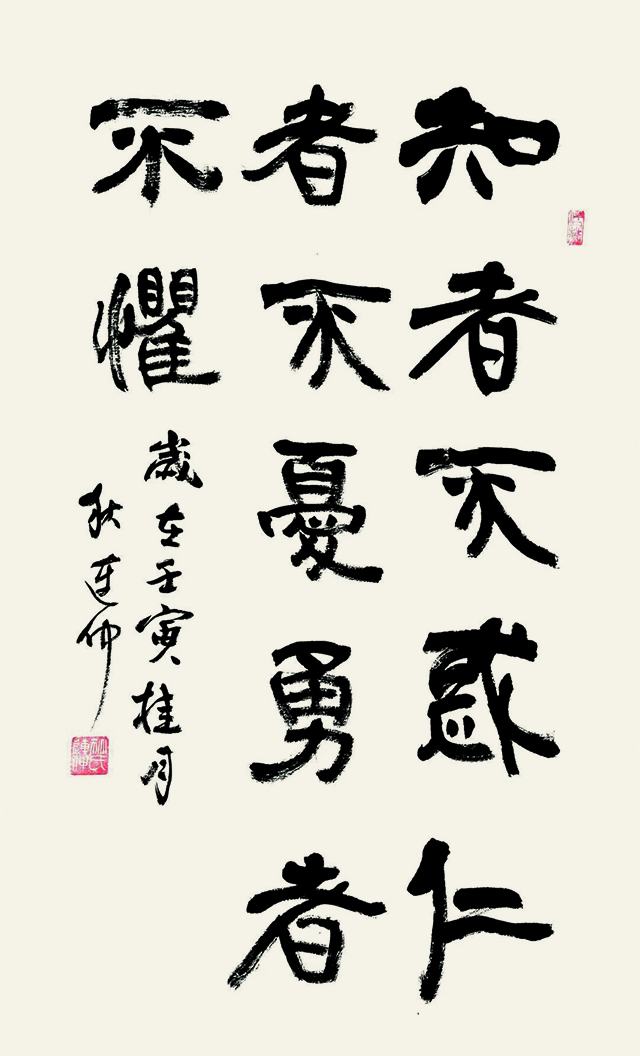 知者不惑仁
者不憂勇者
不懼
歲在壬寅桂月
狄连仲